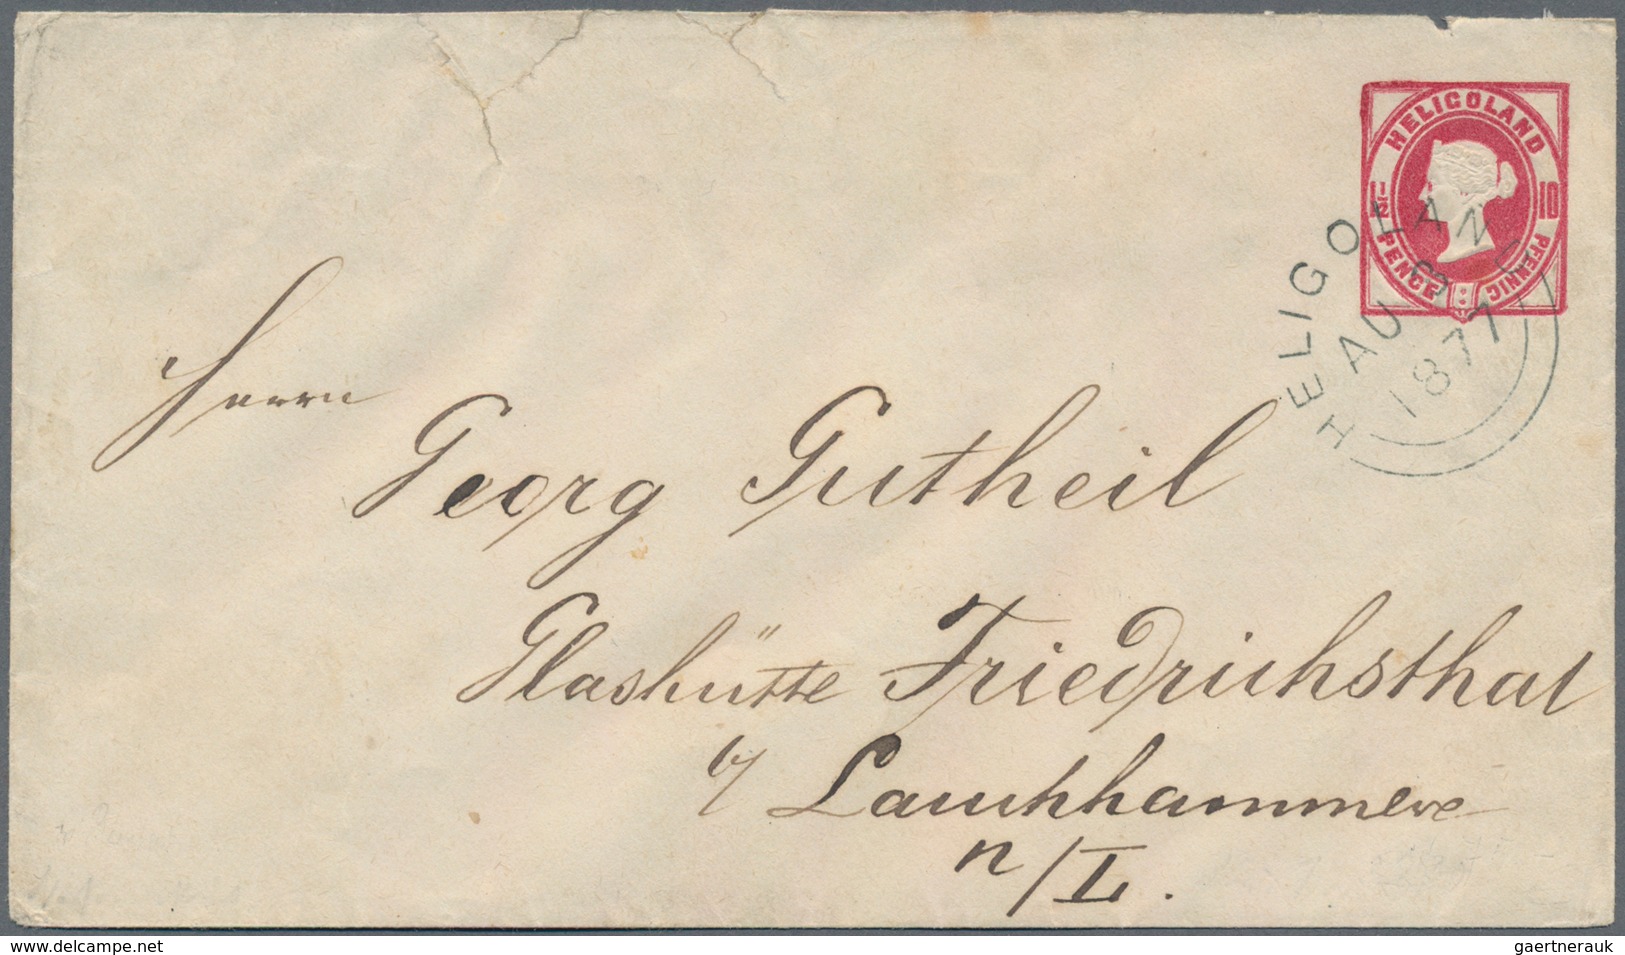 HELIGOLAND
1½ PENCE 10 PFENNIG
HELIGOLAND
AU 3
1877
Herrn
Georg Gutheil
Glashütte Friedrichsthal
b/ Lauchhammer
n/L.
www.delcampe.net
gaertnerauk